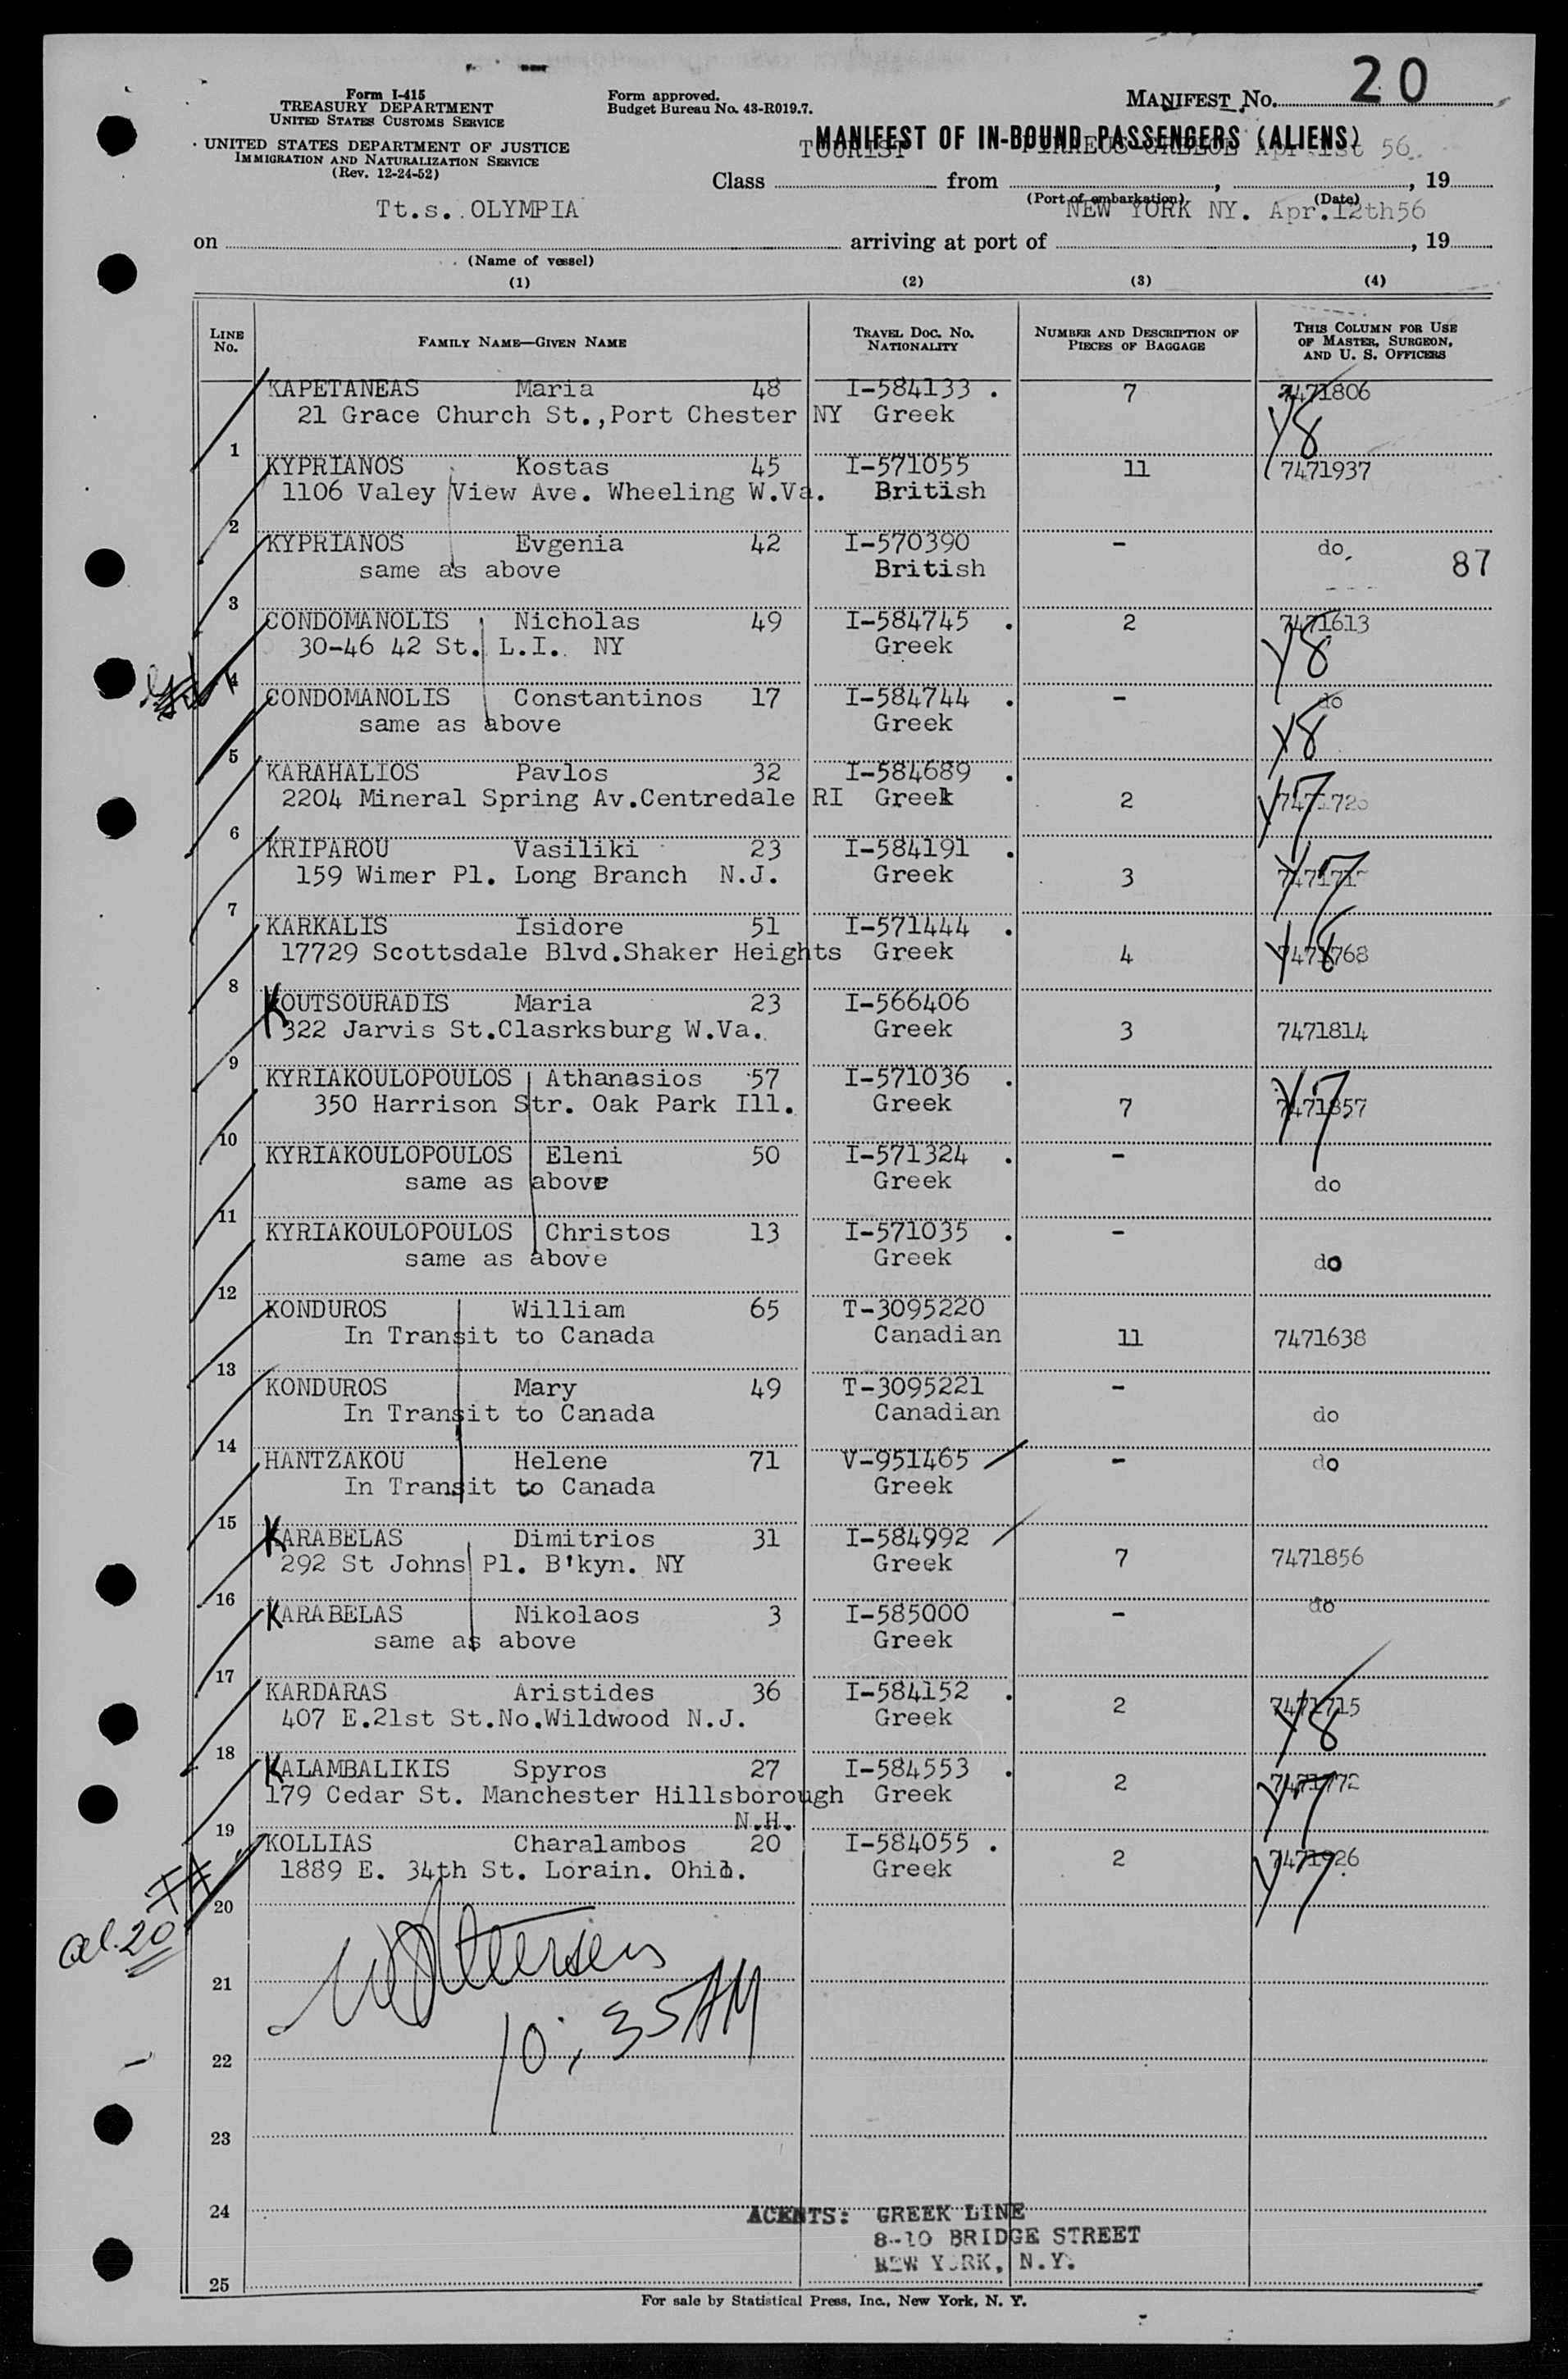 20
Form I-415
TREASURY DEPARTMENT
UNITED STATES CUSTOMS SERVICE
UNITED STATES DEPARTMENT OF JUSTICE
IMMIGRATION AND NATURALIZATION SERVICE
(Rev. 12-24-52)
Form approved.
Budget Bureau No. 43-R019.7.
MANIFEST No.
MANIFEST OF IN-BOUND PASSENGERS (ALIENS)
TOURIST PIRAEUS GREECE Apr 1st 56
Class from , , 19
(Port of embarkation) (Date)
Tt.s. OLYMPIA NEW YORK NY. Apr.12th56
on arriving at port of , 19
(Name of vessel)
(1) (2) (3) (4)
LINE No. FAMILY NAME—GIVEN NAME TRAVEL DOC. No. NATIONALITY NUMBER AND DESCRIPTION OF PIECES OF BAGGAGE THIS COLUMN FOR USE OF MASTER, SURGEON, AND U. S. OFFICERS
KAPETANEAS Maria 48 I-584133 . 7 7471806
21 Grace Church St.,Port Chester NY Greek Y8
1
KYPRIANOS Kostas 45 I-571055 11 7471937
1106 Valey View Ave. Wheeling W.Va. British
2
KYPRIANOS Evgenia 42 I-570390 - do
same as above British 87
3
CONDOMANOLIS Nicholas 49 I-584745 . 2 7471613
30-46 42 St. L.I. NY Greek Y8
4
CONDOMANOLIS Constantinos 17 I-584744 . - do
same as above Greek Y8
5
KARAHALIOS Pavlos 32 I-584689 .
2204 Mineral Spring Av.Centredale RI Greek 2 Y7
6
KRIPAROU Vasiliki 23 I-584191 .
159 Wimer Pl. Long Branch N.J. Greek 3 Y7
7
KARKALIS Isidore 51 I-571444 .
17729 Scottsdale Blvd.Shaker Heights Greek 4 7471768 Y8
8
KOUTSOURADIS Maria 23 I-566406
322 Jarvis St.Clasrksburg W.Va. Greek 3 7471814
9
KYRIAKOULOPOULOS Athanasios 57 I-571036 .
350 Harrison Str. Oak Park Ill. Greek 7 7471857 Y7
10
KYRIAKOULOPOULOS Eleni 50 I-571324 . -
same as above Greek do
11
KYRIAKOULOPOULOS Christos 13 I-571035 . -
same as above Greek do
12
KONDUROS William 65 T-3095220
In Transit to Canada Canadian 11 7471638
13
KONDUROS Mary 49 T-3095221 -
In Transit to Canada Canadian do
14
HANTZAKOU Helene 71 V-951465 - do
In Transit to Canada Greek
15
KARABELAS Dimitrios 31 I-584992
292 St Johns Pl. B'kyn. NY Greek 7 7471856
16
KARABELAS Nikolaos 3 I-585000 - do
same as above Greek
17
KARDARAS Aristides 36 I-584152 . 2 7471715
407 E.21st St.No.Wildwood N.J. Greek Y8
18
KALAMBALIKIS Spyros 27 I-584553 . 2
179 Cedar St. Manchester Hillsborough Greek Y7
N.H.
19
KOLLIAS Charalambos 20 I-584055 . 2 7471926
1889 E. 34th St. Lorain. Ohio. Greek Y7
20
al. 20
21
10:35AM
22
23
24
AGENTS: GREEK LINE
8-10 BRIDGE STREET
NEW YORK, N.Y.
25
For sale by Statistical Press, Inc., New York, N. Y.